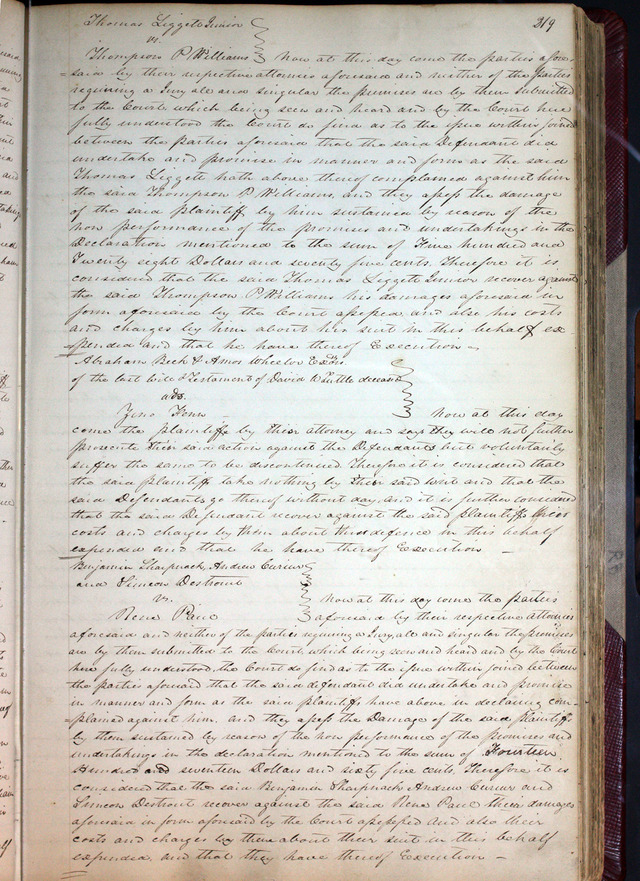 Thomas Liggett Junior
319
vs.
Thompson P Williams Now at this day come the parties afore
said by their respective attornies aforesaid and neither of the parties
requiring a Jury all and singular the premises are by them submitted
to the Court which being seen and heard and by the Court here
fully understood the Court do find as to the issue within joined
between the parties aforesaid that the said Defendant did
undertake and promise in manner and form as the said
Thomas Liggett hath above thereof complained against him
the said Thompson P. Williams, and they assess the damage
of the said plaintiff by him sustained by reason of the
non performance of the promises and undertakings in the
Declaration mentioned to the sum of Five Hundred and
Twenty eight Dollars and seventy five cents. Therefore it is
considered that the said Thomas Liggett Junior recover against
the said Thompson P. Williams his damages aforesaid in
form aforesaid by the Court assessed and also his costs
and charges by him about his suit in this behalf ex
pended and that he have thereof Execution
Abraham Beck & Amos Wheeler Exors.
of the last will & Testament of David W Tuttle deceased
ads.
Now at this day
come the plaintiffs by their attorney and say they will not further
prosecute their said action against the Defendants but voluntarily
suffer the same to be discontinued. Therefore it is considered that
the said plaintiff take nothing by their said writ and that the
said Defendants go thereof without day, and it is further considered
that the said Defendant recover against the said plaintiffs their
costs and charges by them about their defence in this behalf
expended and that he have thereof Execution
Benjamin Sharpnack, Andrew Curiur
and Simeon Destrout
vs.
Now at this day come the parties
Rene Paul aforesaid by their respective attornies
aforesaid and neither of the parties requiring a Jury all and singular the premises
are by them submitted to the Court, which being seen and heard and by the Court
here fully understood, the Court do find as to the issue within joined between
the parties aforesaid that the said defendant did undertake and promise
in manner and form as the said plaintiffs have above in declaring com
plained against him. and they assess the Damage of the said plaintiffs
by them sustained by reason of the non performance of the promises and
undertakings in the declaration mentioned to the sum of Fourteen
Hundred and seventeen Dollars and sixty five cents. Therefore it is
considered that the said Benjamin Sharpnack Andrew Curiur and
Simeon Destrout recover against the said Rene Paul their damages
aforesaid in form aforesaid by the Court assessed and also their
costs and charges by them about their suit in this behalf
expended, and that they have thereof Execution